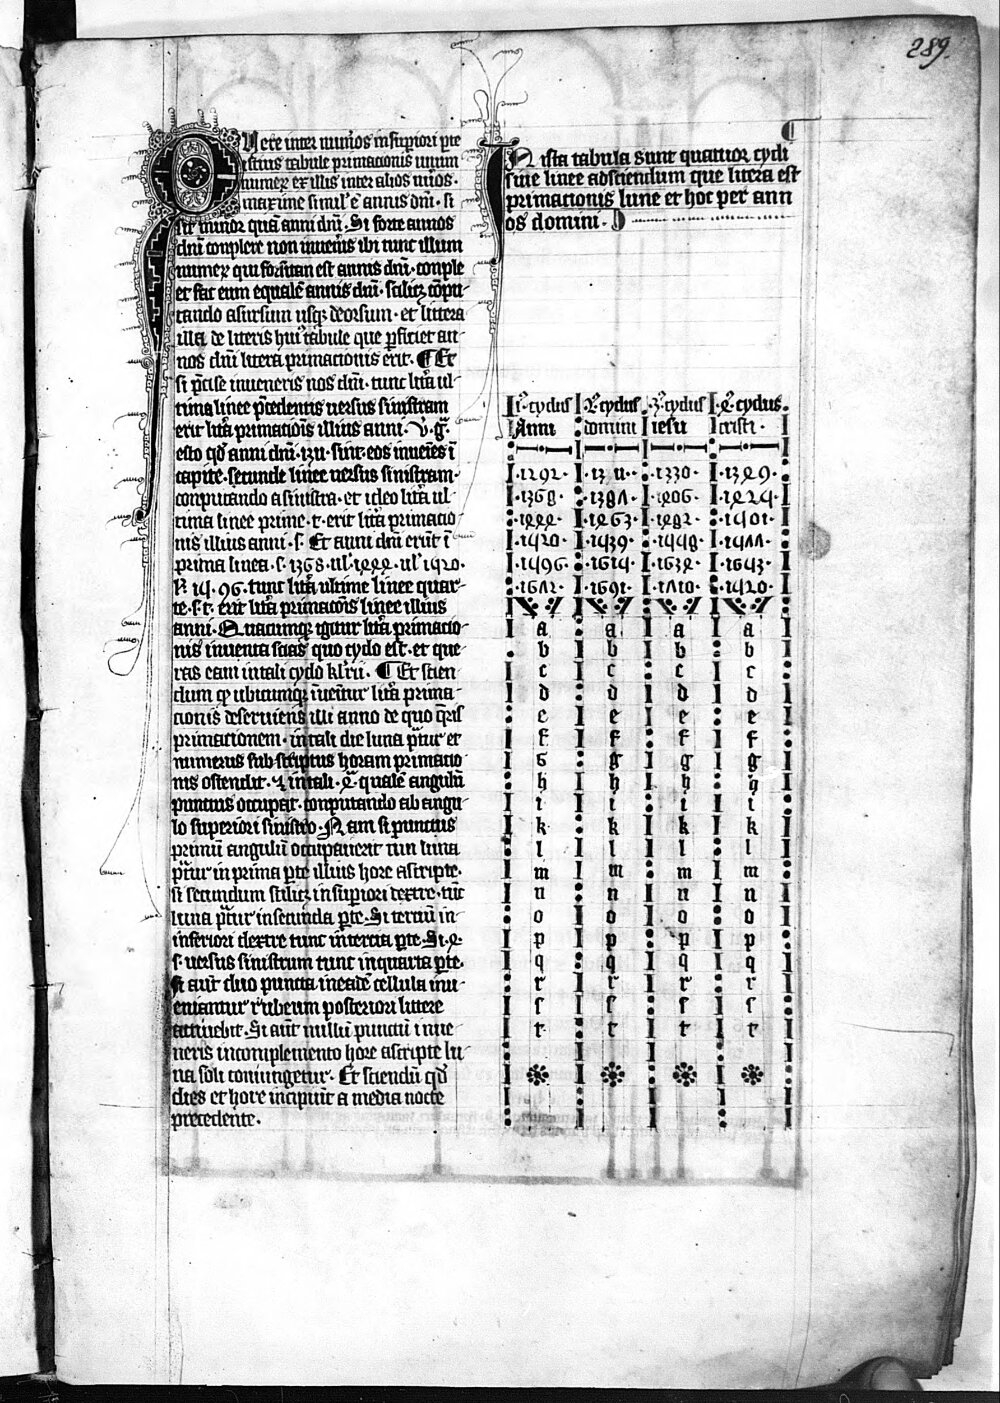 289.
Quere inter numeros in superiori pte
istius tabule primacionis unum
numerꝝ ex illis inter alios nūos ·
maxime simul' ē annis dm̄ · si
sit minor quā anni dm̄ · Si forte annos
dm̄ conplete non inuen̄is ibi tunc illum
numeꝝ qui forsitan est annis dm̄ · conple
et fac eum equalē annis dm̄ · scilicꝫ cōpu-
tando asursum usqꝫ deorsum · et littera
illa de literis hui9 tabule que ꝑficiet an-
nos dm̄ litera primacionis erit · ¶ Et
si p̄cise inueneris nos dm̄ · tunc lr̄a ul-
tima linee p̄cedentis uersus sinistram
erit lr̄a primacionis illius anni ·
esto qd̄ anni dm̄ · sint · eos inuēies ī
capite · secunde linee uersus sinistram ·
conputando a sinistra · et ideo lr̄a ul-
tima linee prime · t · erit lr̄a primacio
nis illius anni · s · Et anni dm̄ erūt ī
prima linea · s · 1368 · ul' 1444 · ul' 1520 ·
tunc lr̄a ultime linee quar-
te · s · t · erit lr̄a primacōis linee illius
anni · Quacunqꝫ igitur lr̄a primacio-
nis inuenta scias quo cyclo est · et que
ras eam in tali cyclo klr̄ii · ¶ Et scien
dum qꝫ ubicunqꝫ īuenitur lr̄a prima-
cionis deseruiens illi anno de quo q̄ris
primacionem · in tali die luna p̄tur et
numerus subscriptus horam primacio
nis ostendit · ⁊ in tali · 4ͣ qualē angulū
punctus occupat · conputando ab angu-
lo superiori sinistro · Nam si punctus
primū angulū occupauerit tun luna
p̄tur in prima ꝑte illius hore ascripte ·
si secundum scilicꝫ in sup̄iori dextre · tūc
luna p̄tur in secunda ꝑte · Si terciū in
inferiori dextre tunc in tercia ꝑte · Si · 4 ·
s · uersus sinistrum tunc in quarta ꝑte ·
Si aūt duo puncta in eadē cellula inu-
eniantur rubeum posteriori littere
attinebit · Si aūt nullū punctū inue-
neris in complemento hore ascripte lu-
na soli coniungetur · Et sciendū qd̄
dies et hore incipiūt a media nocte
precedente ·
¶
IN ista tabula sunt quattuor cycli
siue linee ad sciendum que litera est
primacionis lune et hoc per ann
os domini ·
1ͥ · cyclus 2ͥ · cyclus · 3ͥ · cyclus · 4ͥ · cyclus ·
Anni domini iesu cristi ·
· 1292 · 1311 · · 1330 · · 1349 ·
· 1368 · · 1387 · · 1406 · · 1425 ·
· 1444 · · 1463 · · 1482 · · 1501 ·
· 1520 · · 1539 · · 1558 · · 1577 ·
· 1596 · · 1615 · · 1634 · · 1653 ·
· 1672 · · 1691 · · 1710 ·
a a a a
b b b b
c c c c
d d d d
e e e e
f f f f
G g g g
h h h h
i i i i
k k k k
l l l l
m m m m
n n n n
o o o o
p p p p
q q q q
r r r r
ſ ſ ſ ſ
t t t t